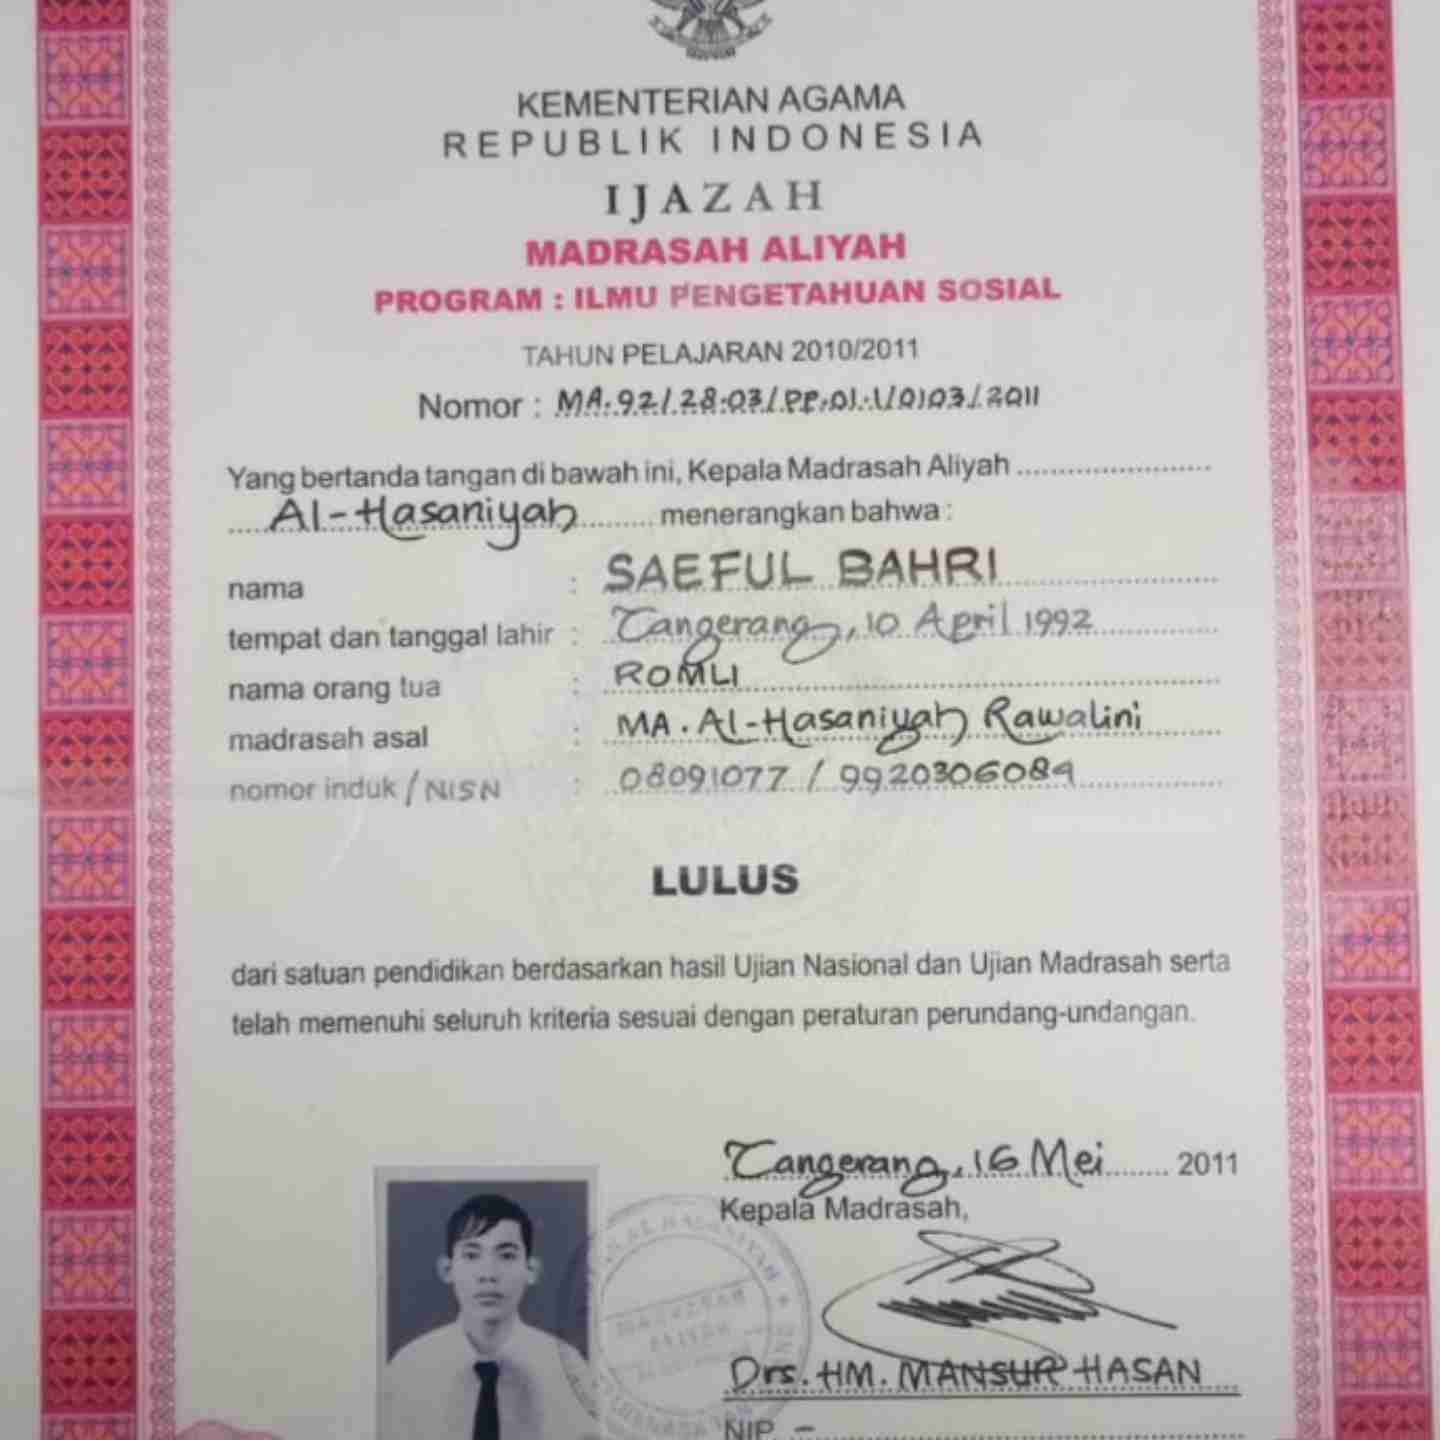 KEMENTERIAN AGAMA
REPUBLIK INDONESIA
IJAZAH
MADRASAH ALIYAH
PROGRAM : ILMU PENGETAHUAN SOSIAL
TAHUN PELAJARAN 2010/2011
Nomor : MA.92/28.03/PP.01.1/0103/2011
Yang bertanda tangan di bawah ini, Kepala Madrasah Aliyah
Al-Hasaniyah menerangkan bahwa :
nama : SAEFUL BAHRI
tempat dan tanggal lahir : Tangerang, 10 April 1992
nama orang tua : ROMLI
madrasah asal : MA. Al-Hasaniyah Rawalini
nomor induk / NISN : 08091077 / 9920306084
LULUS
dari satuan pendidikan berdasarkan hasil Ujian Nasional dan Ujian Madrasah serta
telah memenuhi seluruh kriteria sesuai dengan peraturan perundang-undangan.
Tangerang, 16 Mei 2011
Kepala Madrasah,
MADRASAH
ALIYAH
Drs. HM. MANSUR HASAN
NIP. -